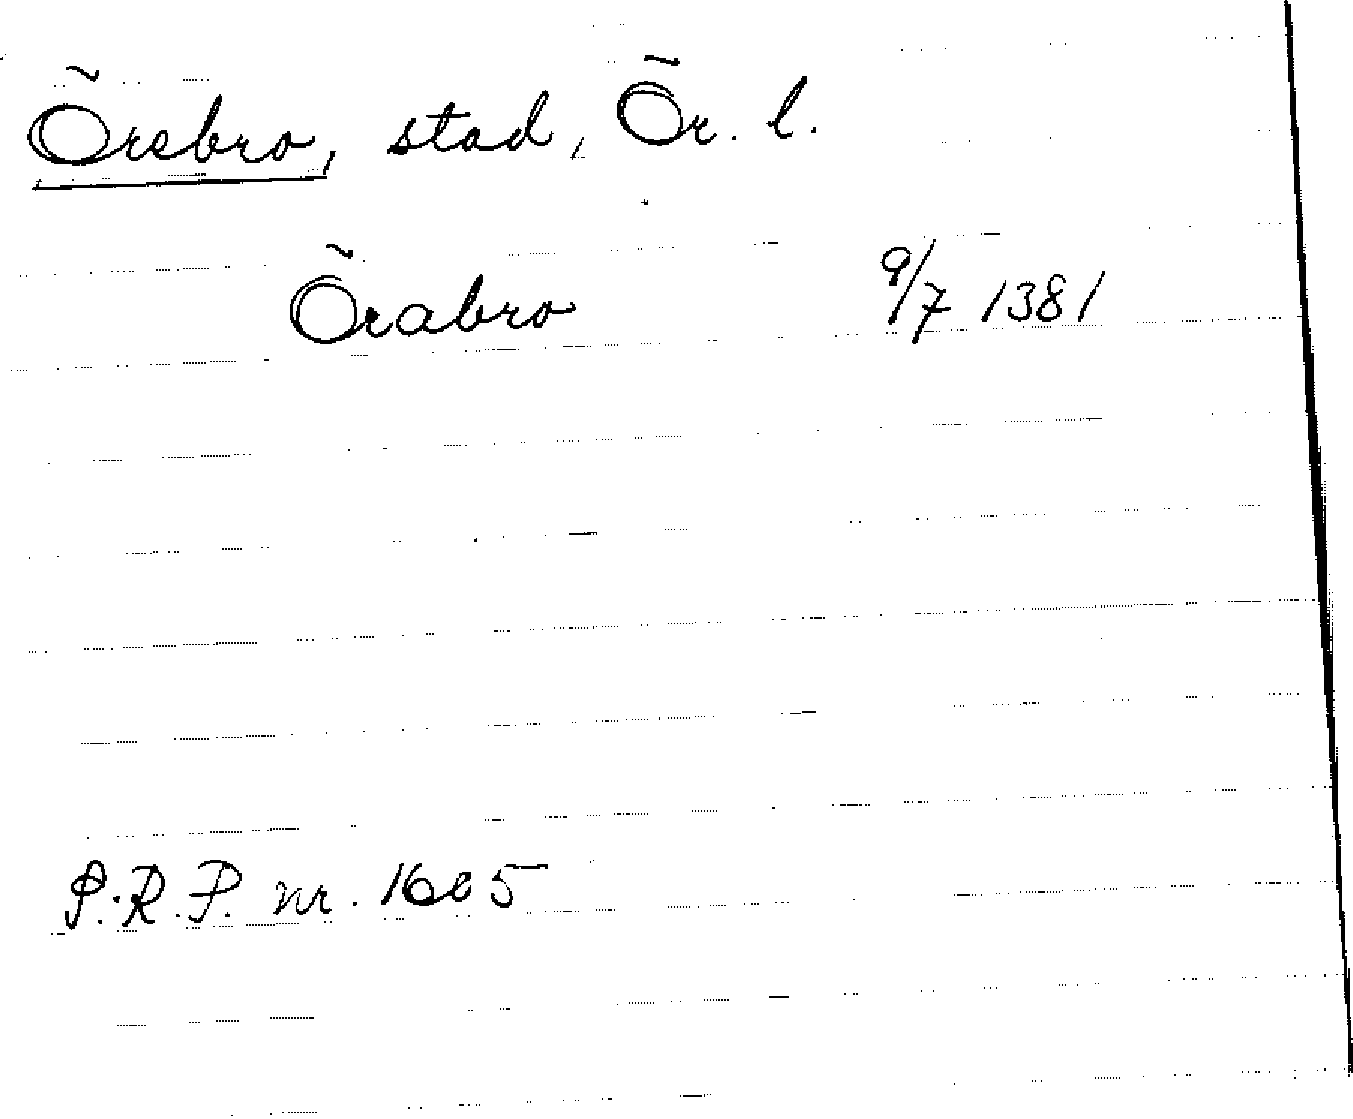 Örebro, stad, Ör. l.
Örabro 9/7 1381
S.R.P. nr. 1605